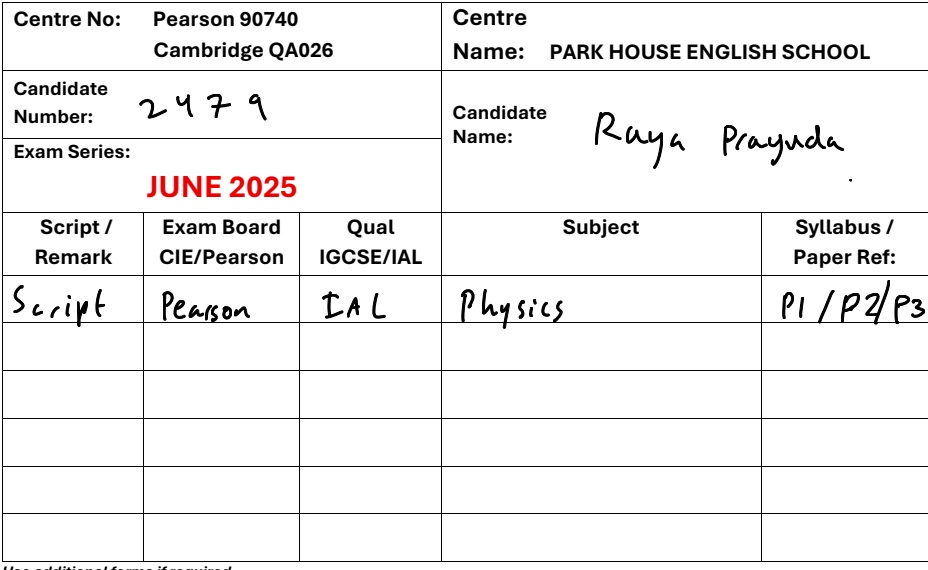 Centre No: Pearson 90740
Cambridge QA026
Centre
Name: PARK HOUSE ENGLISH SCHOOL
Candidate
Number: 2479
Candidate
Name: Raya Prayuda
Exam Series:
JUNE 2025
Script / Remark Exam Board CIE/Pearson Qual IGCSE/IAL Subject Syllabus / Paper Ref:
Script Pearson IAL Physics P1 / P2/P3
Use additional forms if required